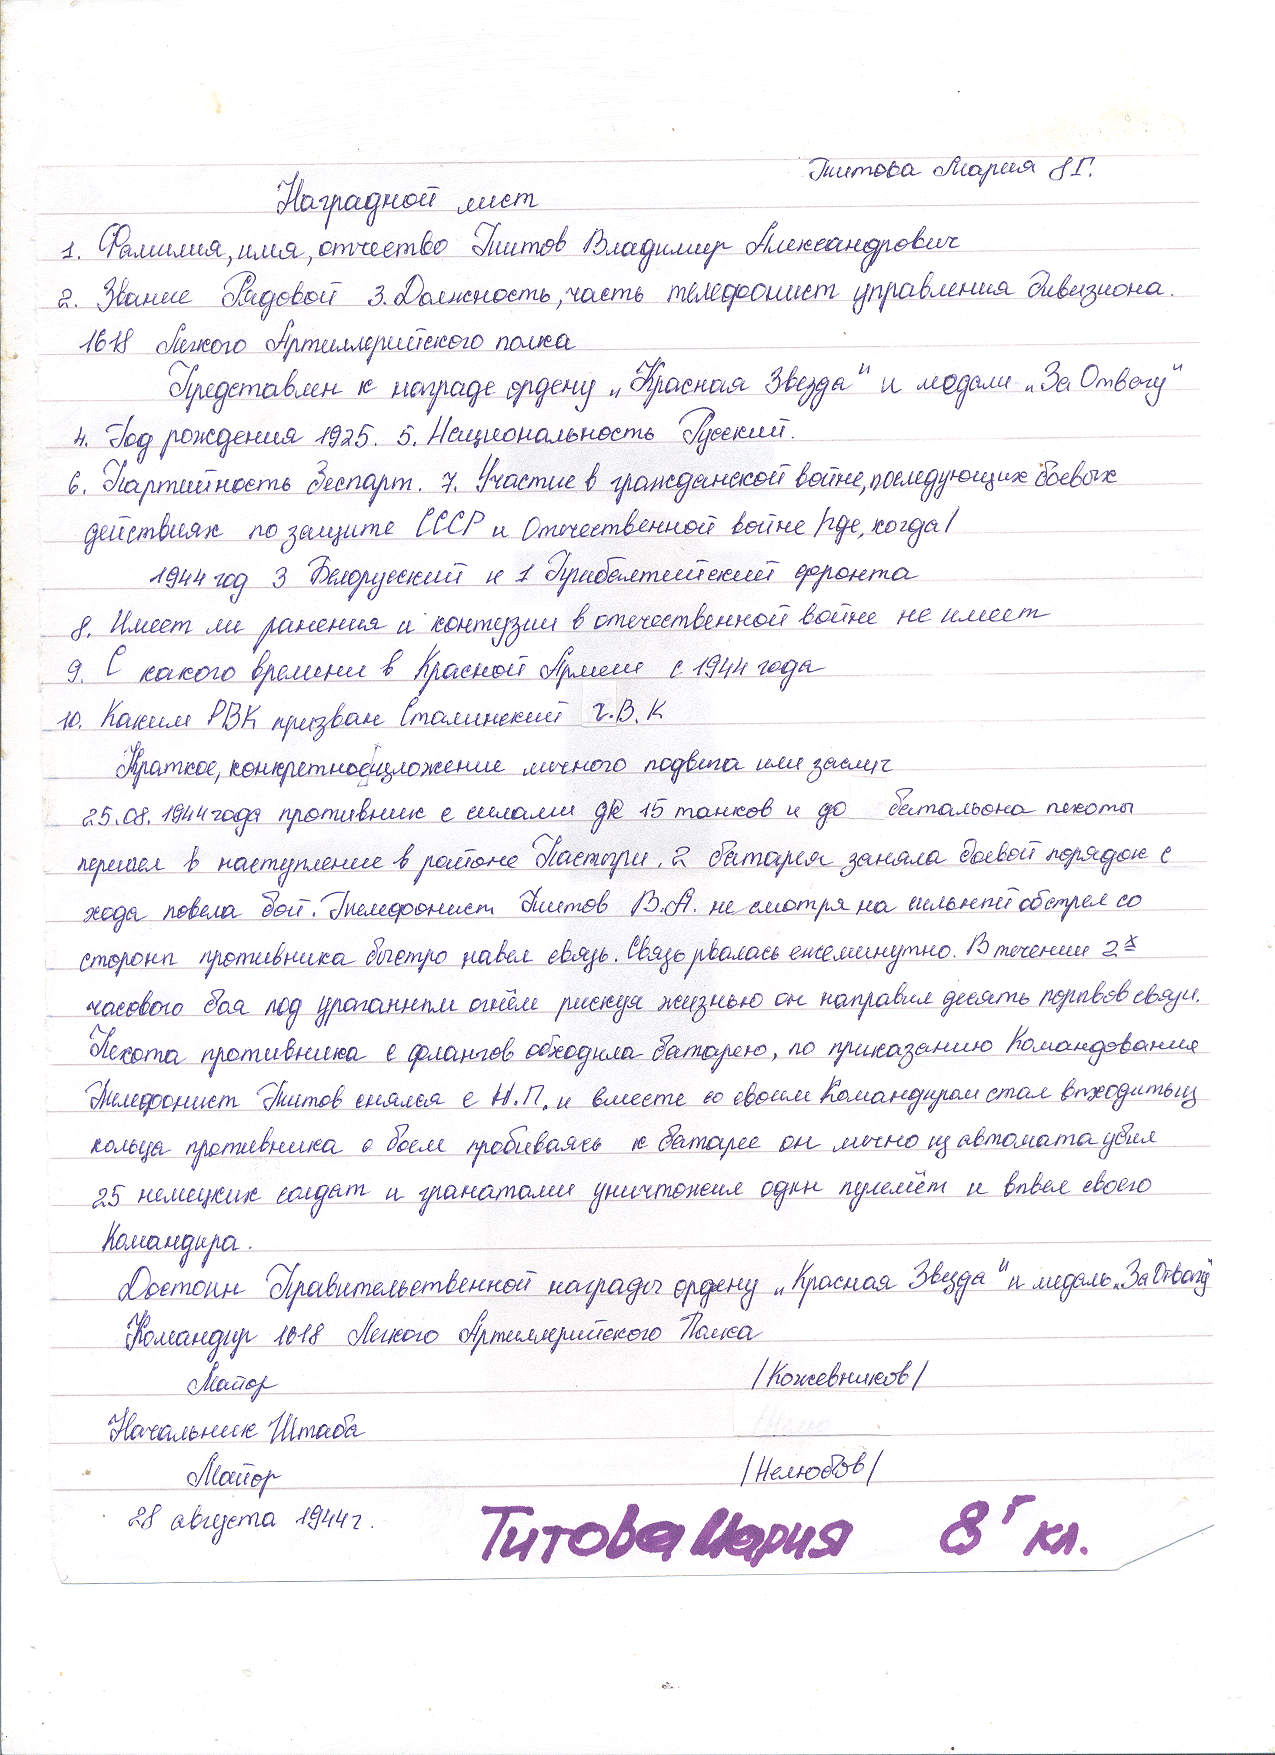 Титова Мария 8Г.
Наградной лист
1. Фамилия, имя, отчество Титов Владимир Александрович
2. Звание Рядовой 3. Должность, часть телефонист управления дивизиона.
1618 Легкого Артиллерийского полка
Представлен к награде ордену „Красная Звезда" и медали „За Отвагу"
4. Год рождения 1925. 5. Национальность Русский.
6. Партийность Беспарт. 7. Участие в гражданской войне, последующих боевых
действиях по защите СССР и Отечественной войне /где, когда/
1944 год 3 Белорусский и 1 Прибалтийский фронта
8. Имеет ли ранения и контузии в отечественной войне не имеет
9. С какого времени в Красной Армии с 1944 года
10. Каким РВК призван Сталинский Г.В.К
Краткое, конкретное изложение личного подвига или заслуг
25.08.1944 года противник с силами до 15 танков и до батальона пехоты
перешел в наступление в районе Пастыри. 2 батарея заняла боевой порядок с
хода повела бой. Телефонист Титов В.А. не смотря на сильный обстрел со
стороны противника быстро навел связь. Связь рвалась ежеминутно. В течении 2х
часового боя под ураганным огнём рискуя жизнью он направил десять порывов связи.
Пехота противника с флангов обходила батарею, по приказанию Командования
Телефонист Титов снялся с Н.П. и вместе со своим Командиром стал выходить из
кольца противника с боем пробиваясь к батарее он лично из автомата убил
25 немецких солдат и гранатами уничтожил один пулемёт и вывел своего
Командира.
Достоин Правительственной награды ордену „Красная Звезда" и медаль „За Отвагу"
Командир 1618 Легкого Артиллерийского Полка
Майор /Кожевников/
Начальник Штаба
Майор /Нелюбов/
28 августа 1944 г.
Титова Мария 8Г кл.